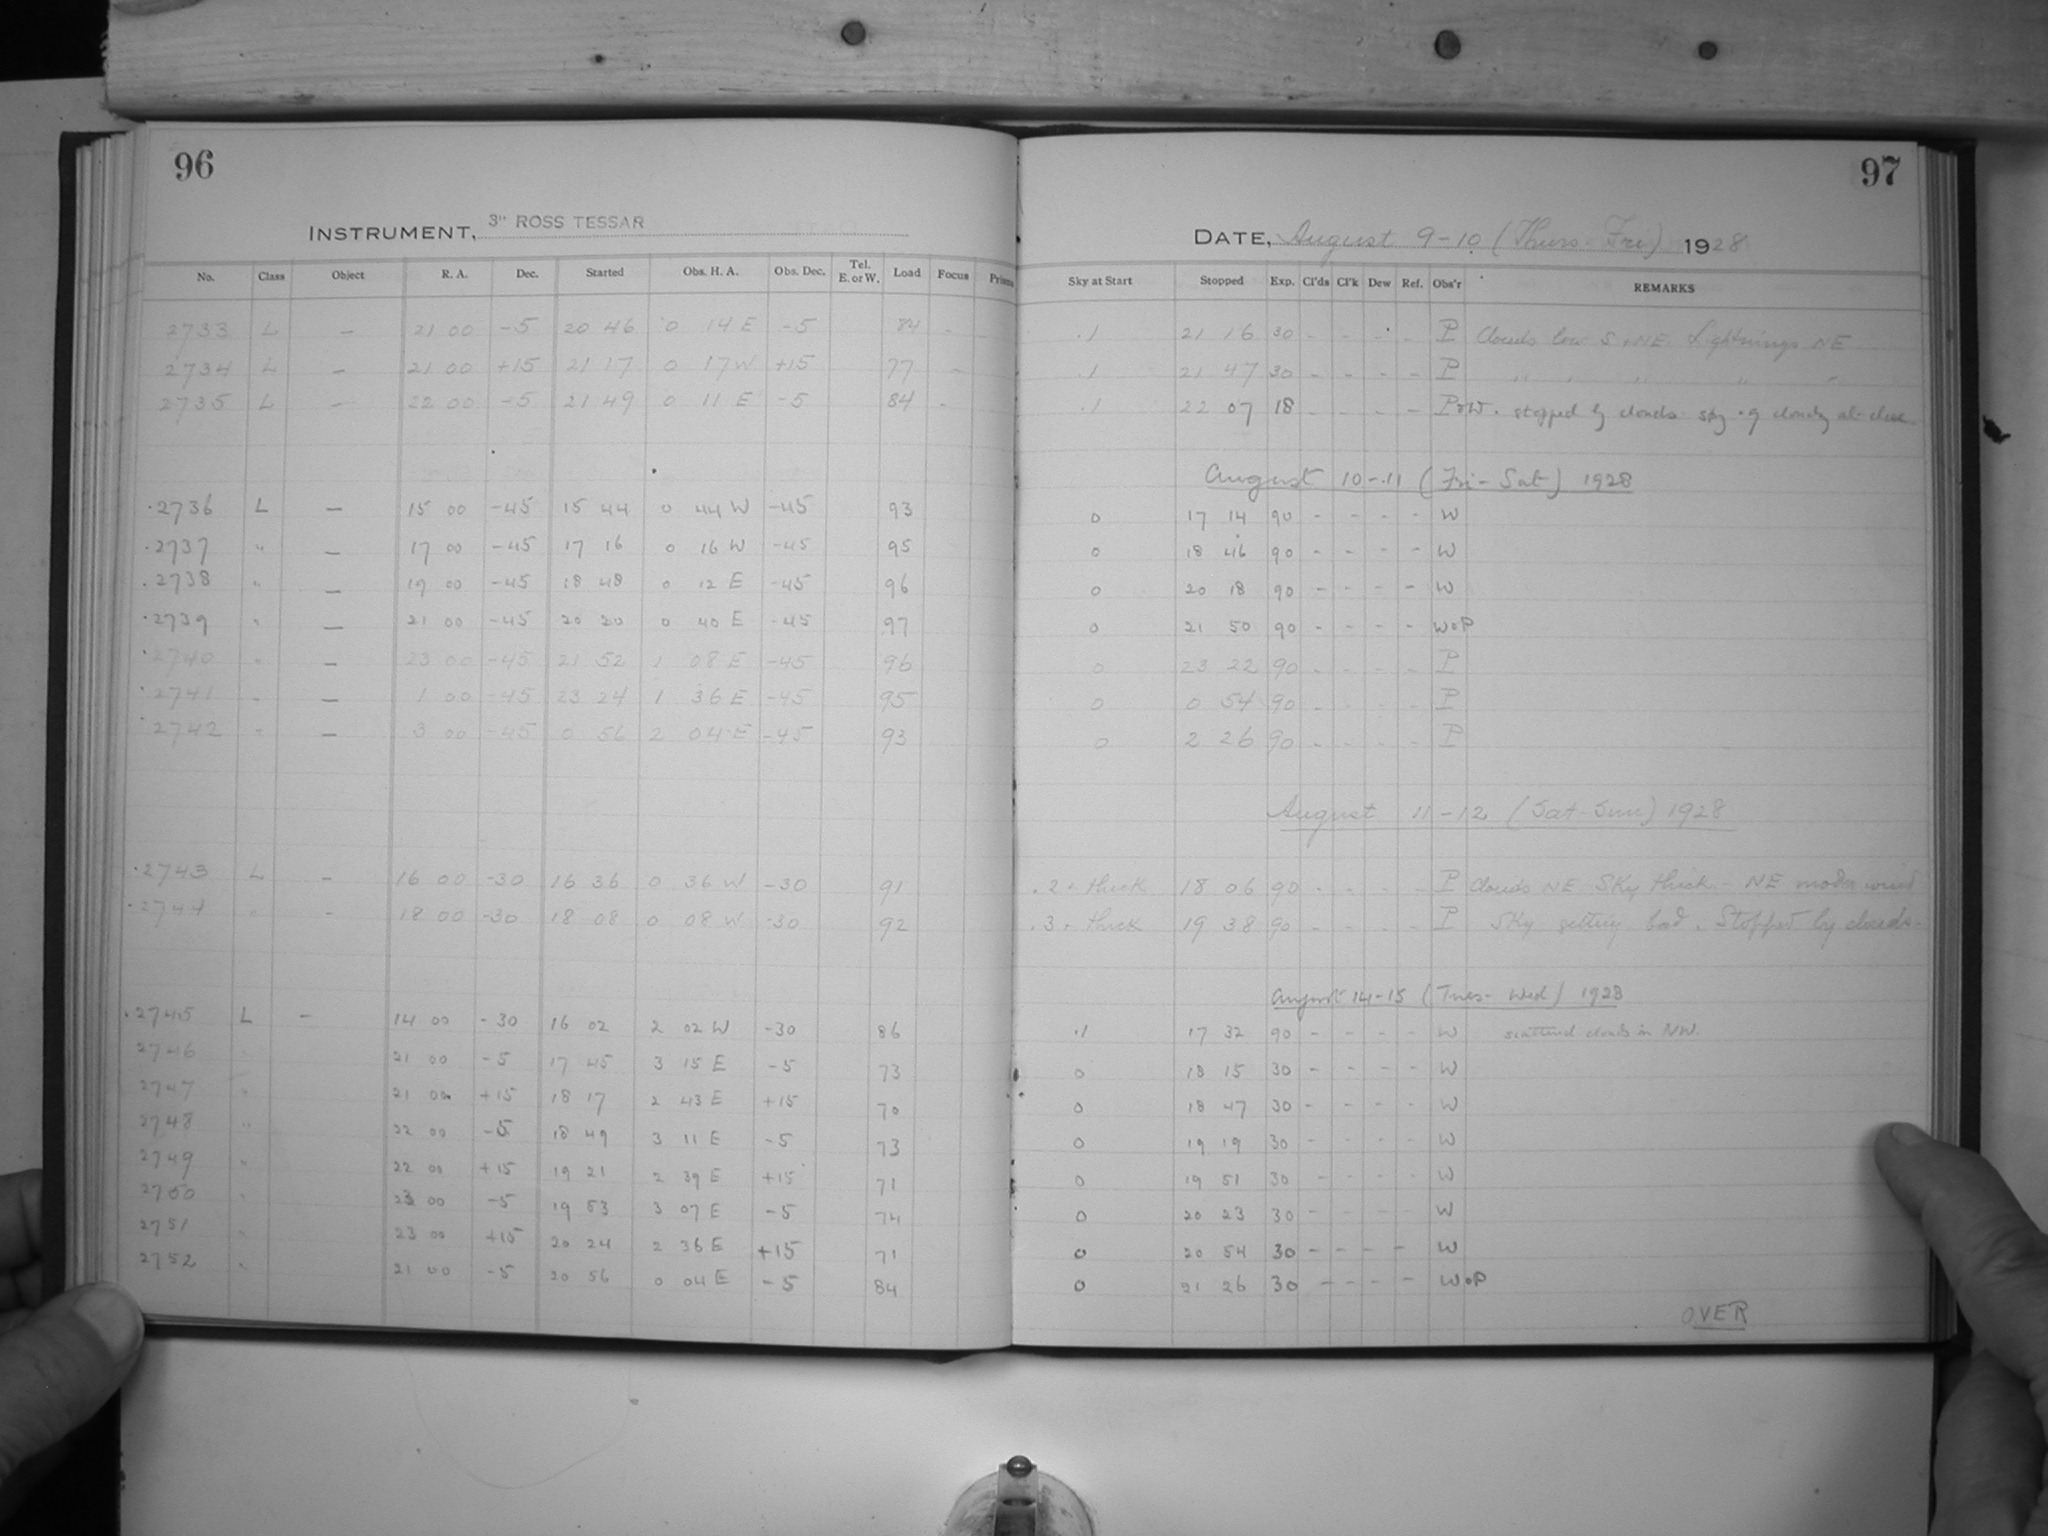 96
INSTRUMENT, 3" ROSS TESSAR
No. Class Object R. A. Dec. Started Obs. H. A. Obs. Dec. Tel. E. or W. Load Focus Prism
2733 L — 21 00 -5 20 46 0 14 E -5 84 -
2734 L — 21 00 +15 21 17 0 17 W +15 77 -
2735 L — 22 00 -5 21 49 0 11 E -5 84 -
2736 L — 15 00 -45 15 44 0 44 W -45 93
2737 " — 17 00 -45 17 16 0 16 W -45 95
2738 " — 19 00 -45 18 48 0 12 E -45 96
2739 " — 21 00 -45 20 20 0 40 E -45 97
2740 " — 23 00 -45 21 52 1 08 E -45 96
2741 " — 1 00 -45 23 24 1 36 E -45 95
2742 " — 3 00 -45 0 56 2 04 E -45 93
2743 L — 16 00 -30 16 36 0 36 W -30 91
2744 " — 18 00 -30 18 08 0 08 W -30 92
2745 L — 14 00 -30 16 02 2 02 W -30 86
2746 " 21 00 -5 17 45 3 15 E -5 73
2747 " 21 00 +15 18 17 2 43 E +15 70
2748 " 22 00 -5 18 49 3 11 E -5 73
2749 " 22 00 +15 19 21 2 39 E +15 71
2750 " 23 00 -5 19 53 3 07 E -5 74
2751 " 23 00 +15 20 24 2 36 E +15 71
2752 " 21 00 -5 20 56 0 04 E -5 84
97
DATE, August 9-10 (Thurs-Fri) 1928
Sky at Start Stopped Exp. Cl'ds Cl'k Dew Ref. Obs'r REMARKS
.1 21 16 30 - - - - P Clouds low S + NE. Lightnings NE
.1 21 47 30 - - - - P " " " " "
.1 22 07 18 - - - P+W. stopped by clouds. sky .9 cloudy at close
August 10-11 (Fri-Sat) 1928
0 17 14 90 - - - - W
0 18 46 90 - - - - W
0 20 18 90 - - - - W
0 21 50 90 - - - - W+P
0 23 22 90 - - - - P
0 0 54 90 - - - - P
0 2 26 90 - - - - P
August 11-12 (Sat-Sun) 1928
.2 - thick 18 06 90 - - - - P Clouds NE Sky thick - NE moder wind
.3 - thick 19 38 90 - - - - P Sky getting bad. Stopped by clouds-
August 14-15 (Tues-Wed) 1928
.1 17 32 90 - - - - W scattered clouds in NW.
0 18 15 30 - - - - W
0 18 47 30 - - - - W
0 19 19 30 - - - - W
0 19 51 30 - - - - W
0 20 23 30 - - - - W
0 20 54 30 - - - - W
0 21 26 30 - - - - W+P
OVER